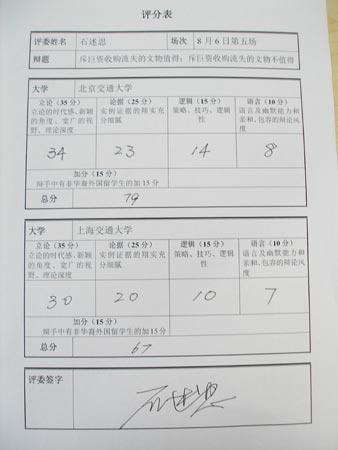 评分表
评委姓名 石述思 场次 8月6日第五场
辩题 斥巨资收购流失的文物值得；斥巨资收购流失的文物不值得
大学 北京交通大学
立论（35分） 论据（25分） 逻辑（15分） 语言（10分）
立论的时代感、新颖 实例证据的翔实充 策略、技巧、逻辑 语言及幽默能力和
的角度、宽广的视 分细腻 性 亲和、包容的辩论风
野、理论深度 度
34 23 14 8
加分（15分）
辩手中有非华裔外国留学生的加15分
总分 79
大学 上海交通大学
立论（35分） 论据（25分） 逻辑（15分） 语言（10分）
立论的时代感、新颖 实例证据的翔实充 策略、技巧、逻辑 语言及幽默能力和
的角度、宽广的视 分细腻 性 亲和、包容的辩论风
野、理论深度 度
30 20 10 7
加分（15分）
辩手中有非华裔外国留学生的加15分
总分 67
评委签字 石述思